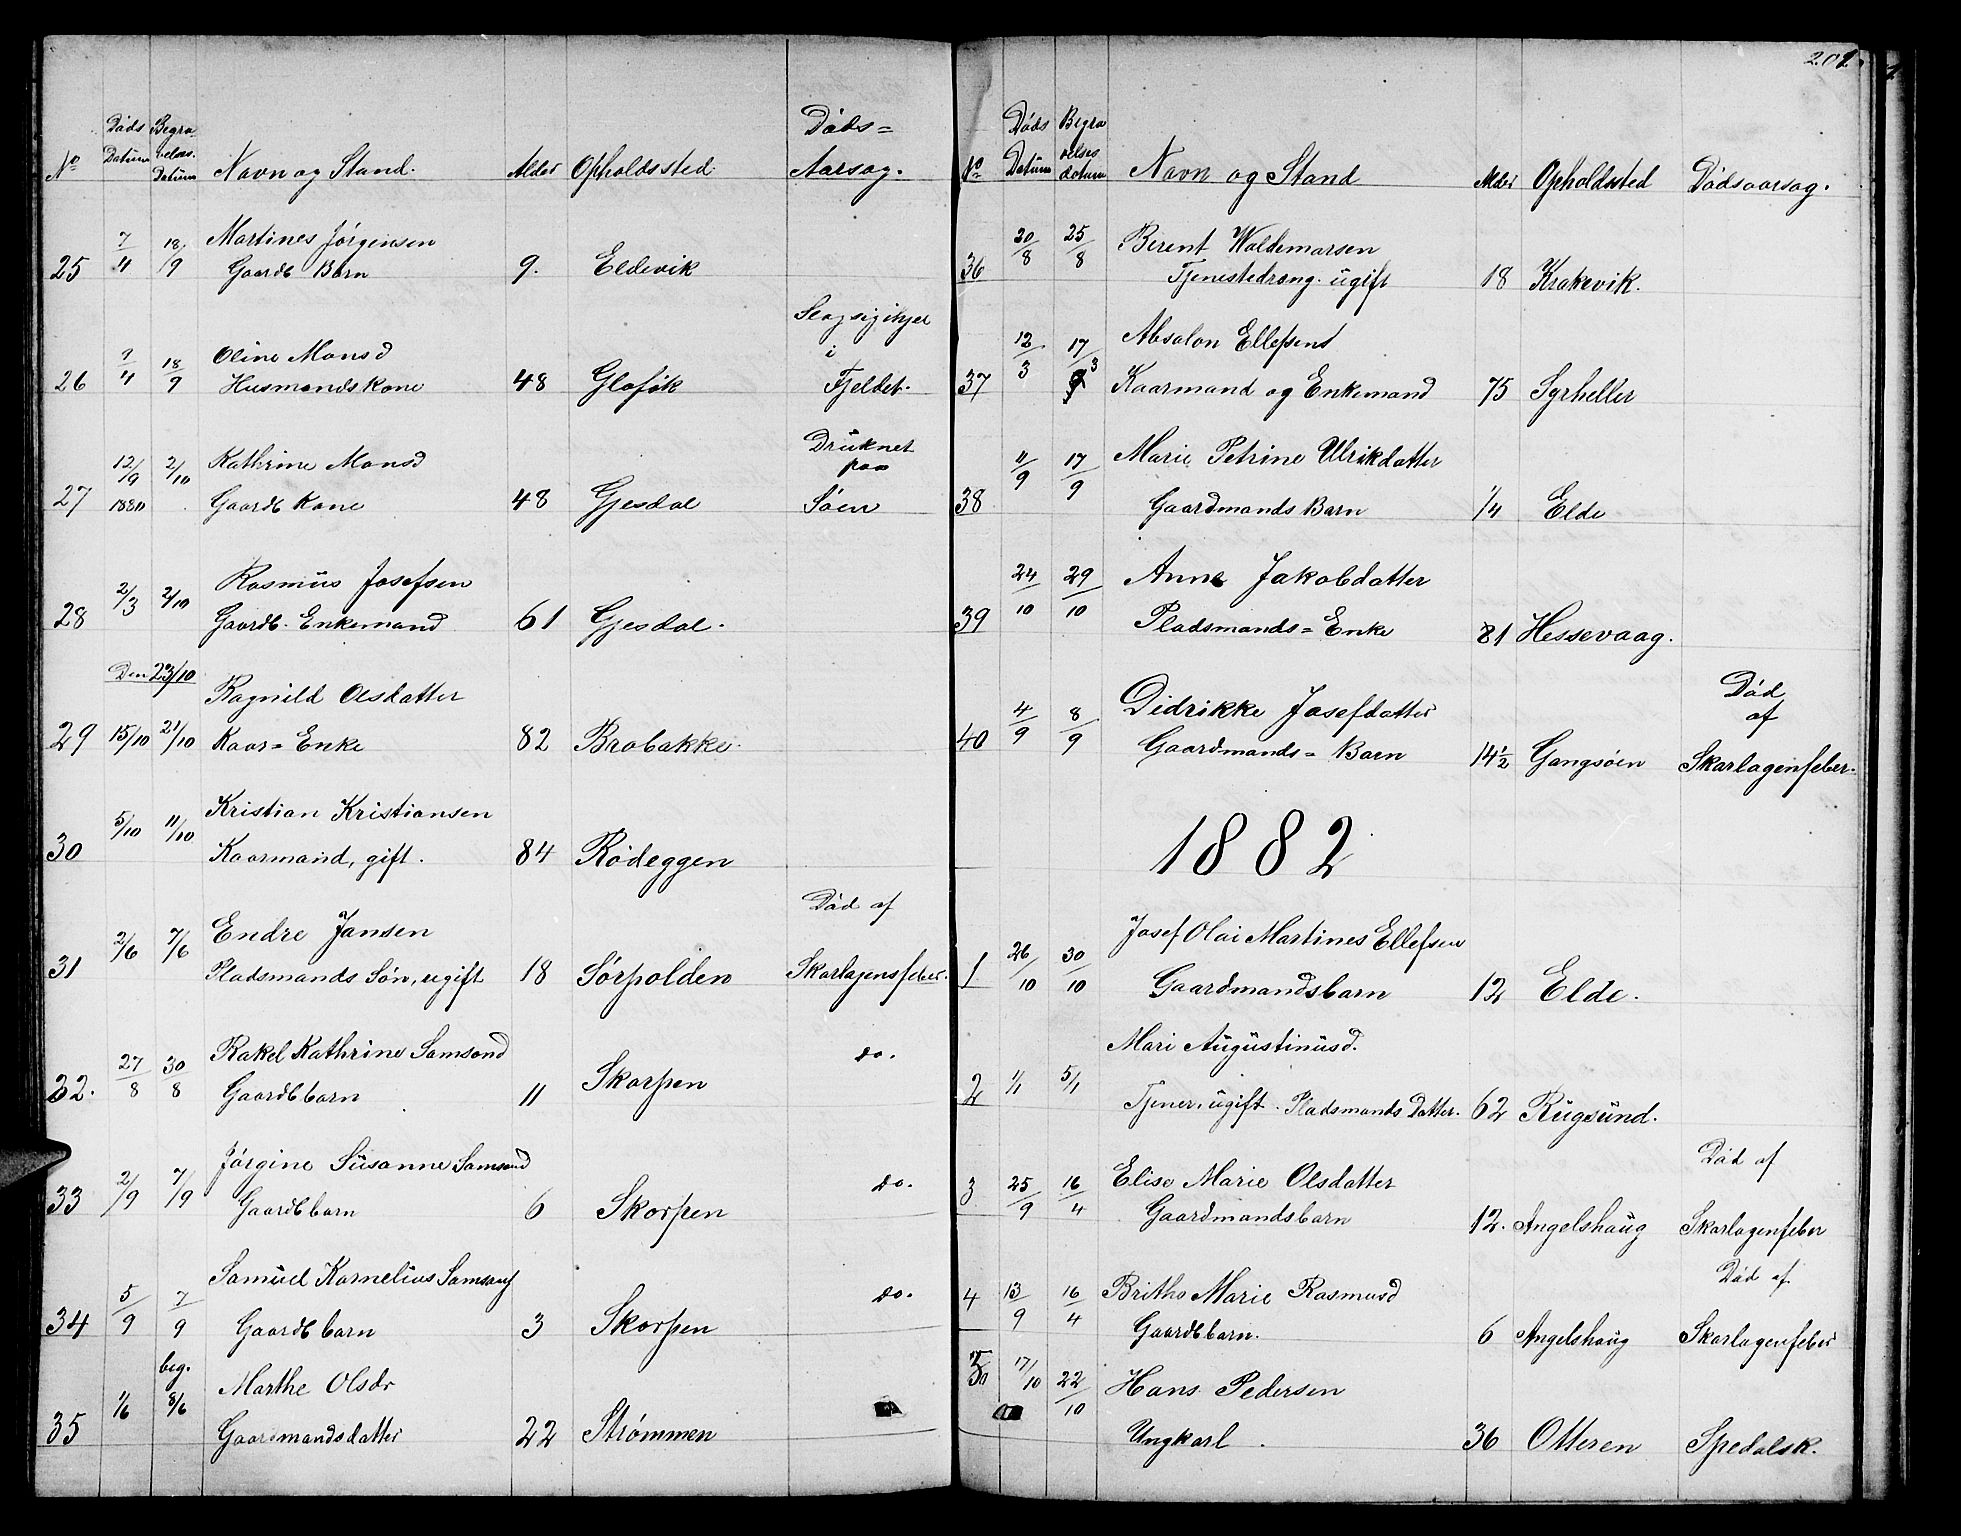 201
Døds Datum
Begravelses Datum
No Navn og Stand. Alder Opholdssted. Døds= Aarsag.
25 7/4 18/9 Martines Jørgensen
Gaardb Barn 9. Eldevik
26 9/4 18/9 Oline Monsd
Husmandskone 48
i
Fjeldet.
27 12/9 1880 2/10 Kathrine Monsd
Gaardb Kone 48 Gjesdal Druknet
paa
Søen
28 2/3 2/10 Rasmus Josefsen
Gaardb. Enkemand 61 Gjesdal.
Den 23/10
29 15/10 21/10 Ragnild Olsdatter
Kaar=Enke 82 Brobakke.
30 5/10 11/10 Kristian Kristiansen
Kaarmand, gift. 84 Rødeggen
31 2/6 7/6 Endre Jansen
Pladsmands Søn, ugift 18 Sørpolden Død af
Skarlagensfeber.
32. 27/8 30/8 Rakel Kathrine Samsond
Gaardbbarn 11 Skorpen do.
33 2/9 7/9 Jørgine Susanne Samsond
Gaardbbarn 6 Skorpen do.
34 5/9 7/9 Samuel Kornelius Samsons
Gaardbbarn 3 Skorpen do.
35 1/6 beg. 8/6 Marthe Olsdr
Gaardmandsdatter 22 Strømmen
No Døds Datum Begravelses datum Navn og Stand Alder Opholdssted Dødsaarsag.
36 20/8 25/8 Berent Waldemarsen
Tjenestedreng. ugift 18 Krakevik.
37 12/3 17/3 Absalon Ellefsen
Kaarmand og Enkemand 75 Syrheller
38 11/9 17/9 Marie Petrine Ulrikdatter
Gaardmands Barn 1/4 Elde
39 24/10 29/10 Anne Jakobdatter
Pladsmands=Enke 81 Hessevaag.
40 4/9 8/9 Didrikke Josefdatter
Gaardmands=Barn 14½ Gangsøen Død
af
Skarlagenfeber.
1882
1 26/10 30/10 Josef Olai Martines Ellefsen
Gaardmandsbarn 12 Elde.
2 1/1 5/1 Mari Augustinusd.
Tjener, ugift. Pladsmands Datter. 62 Rugsund.
3 25/9 16/4 Elise Marie Olsdatter
Gaardmandsbarn 12. Angelshaug Død af
Skarlagenfeber
4 13/9 16/4 Britha Marie Rasmusd
Gaardbbarn. 6 Angelshaug Død af
Skarlagenfeber
5 17/10 22/10 Hans Pedersen
Ungkarl. 36 Otteren Spedalsk.